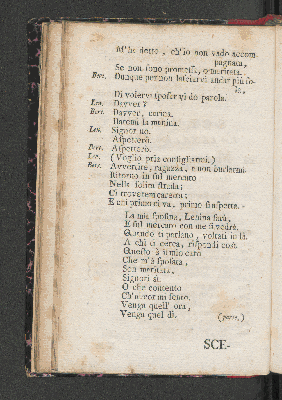 M'ha detto, ch'io non vado accom-
pagnata,
Se non sono promessa, o maritata.
Bert. Dunque per non lasciarvi andar più so-
la,
Di volervi sposar vi do parola.
Len. Davver?
Bert. Davver, carina.
Datemi la manina.
Len. Signor no.
Aspetterò.
Bert. Aspetterò.
Len. (Voglio pria consigliarmi.)
Bert. Avvertite, ragazza, e non burlarmi.
Ritorno in sul mercato
Nella solita strada;
Ci troveremo ancora;
E chi primo ci va, primo s'aspetta.
La mia sposina, Lenina sarà,
E sul mercato con me si vedrà.
Quando vi parlano, voltati in là.
A chi ti cerca, rispondi così.
Questo è il mio caro
Che m'ha sposata,
Son maritata,
Signori sì.
O che contento
Ch'al cor mi sento.
Venga quell' ora,
Venga quel dì. (parte.)
SCE-